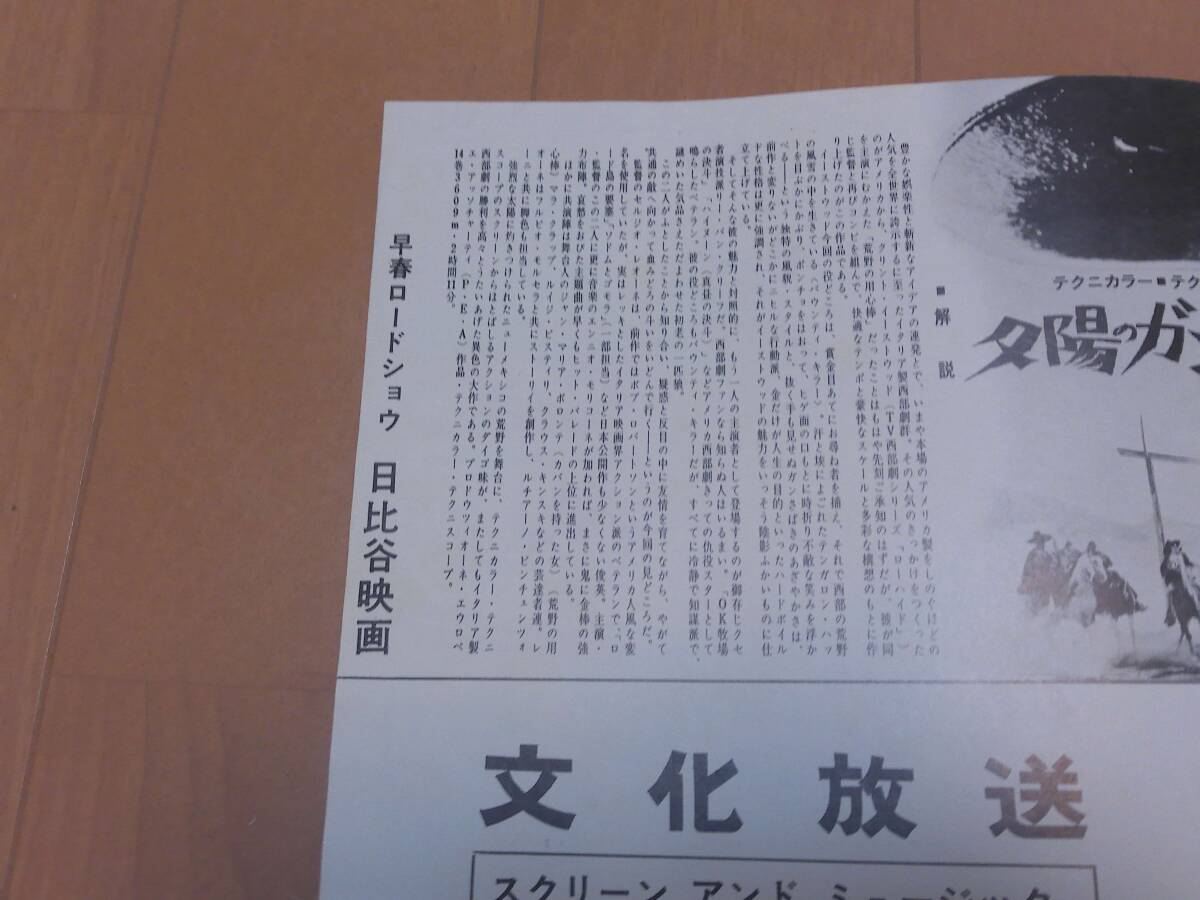 テクニカラー■テク
夕陽のガ
■解説
豊かな娯楽性と斬新なアイデアの連発とで、いまや本場のアメリカ製をしのぐほどの
人気を全世界に誇示するに至ったイタリア製西部劇群。その人気のきっかけをつくった
のがアメリカから、クリント・イーストウッド（TV西部劇シリーズ「ローハイド」）
を主演にむかえた「荒野の用心棒」だったことはもはや先刻ご承知のはずだが、彼が同
じ監督と再びコンビを組んで、快適なテンポと豪快なスケールと多彩な構想のもとに作
り上げたのがこの作品である。
イーストウッド今回の役どころは、賞金目あてにお尋ね者を捕え、それで西部の荒野
の風雪の中を生きているバウンティ・キラー。汗と埃によごれたテンガロン・ハッ
トを目ぶかにかぶり、ポンチョをはおって、ヒゲ面の口もとに時折り不敵な笑みを浮か
べる――という独特の風貌・スタイルと、抜く手も見せぬガンさばきのあざやかさは、
前作と変りないがどこかにニヒルな行動派、金だけが人生の目的といったハードボイル
ドな性格は更に強調され、それがイーストウッドの魅力をいっそう陰影ふかいものに仕
立て上げている。
そしてそんな彼の魅力と対照的に、もう一人の主演者として登場するのが御存じクセ
者演技派リー・バン・クリーフだ。西部劇ファンなら知らぬ人はいるまい。「OK牧場
の決斗」「ハイヌーン（真昼の決斗）」などアメリカ西部劇きっての仇役スターとして
鳴らしたベテラン。彼の役どころもバウンティ・キラーだが、すべてに冷静で知謀派で、
謎めいた気品さえただよわせた初老の一匹狼。
この二人がふとしたことから知り合い、疑惑と反目の中に友情を育てながら、やがて
共通の敵へ向かって血みどろの斗いをいどんで行く――というのが今回の見どころだ。
監督のセルジオ・レオーネは、前作ではボブ・ロバートソンというアメリカ人風な変
名を使用していたが、実はレッキとしたイタリア映画界アクション派のベテランで「ロ
ード島の要塞」「ソドムとゴモラ」（一部担当）など日本公開作も少なくない俊英。主演・
監督のこの二人に更に音楽のエンニオ・モリコーネが加われば、まさに鬼に金棒の強
力布陣。哀愁をおびた主題曲が早くもヒット・パレードの上位に進出している。
ほかに共演陣は舞台人のジャン・マリア・ボロンテ（カバンを持った女）（荒野の用
心棒）マラ・クラップ、ルイジ・ピスティリ、クラウス・キンスキなどの芸達者連。レ
オーネはフルビオ・モルセラと共にストーリイを創作し、ルチアーノ・ビンチェンツォ
ーニと共に脚色も担当している。
強烈な太陽に灼きつけられたニューメキシコの荒野を舞台に、テクニカラー・テクニ
スコープのスクリーンからほとばしるアクションのダイゴ味が、またしてもイタリア製
西部劇の勝利を高々とうたいあげた異色の大作である。プロドウツィオーネ・エウロペ
エ・アッソチャーティ（P・E・A）作品・テクニカラー・テクニスコープ。
14巻3・609m・2時間11分。
早春ロードショウ 日比谷映画
文化放送
スクリーン アンド ミュージック